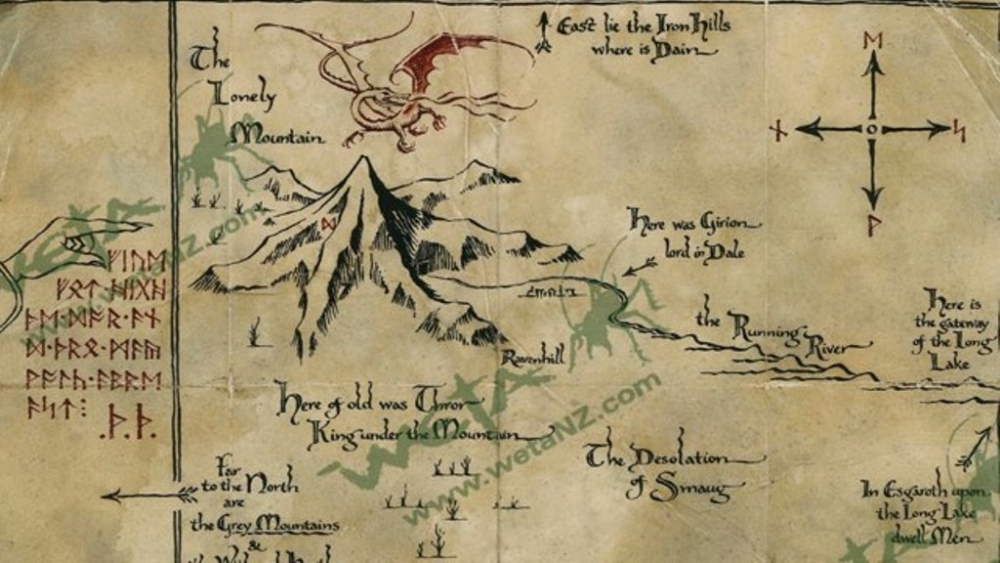 East lie the Iron Hills
where is Dain
The
Lonely
Mountain
ᛖ
ᚾ
ᛋ
ᚹ
ᛞ
Here was Girion
lord in Dale
ᚠᛁᚢᛖ
ᚠᛟᛏ·ᚻᛁᚷᚻ
ᚦᛖ·ᛞᚩᚱ·ᚪᚾ
ᛞ·ᚦᚱᛟ·ᛗᚪᚣ
ᚹᚪᛚᚳ·ᚪᛒᚱᛖ
ᚪᛋᛏ⁝
.ᚦ.ᚦ.
the Running River
Here is
the gateway
of the Long
Lake
Ravenhill
Here of old was Thror
King under the Mountain
The Desolation
of Smaug
Far
to the North
are
the Grey Mountains
&
In Esgaroth upon
the Long Lake
dwell Men
WETA
www.wetaNZ.com